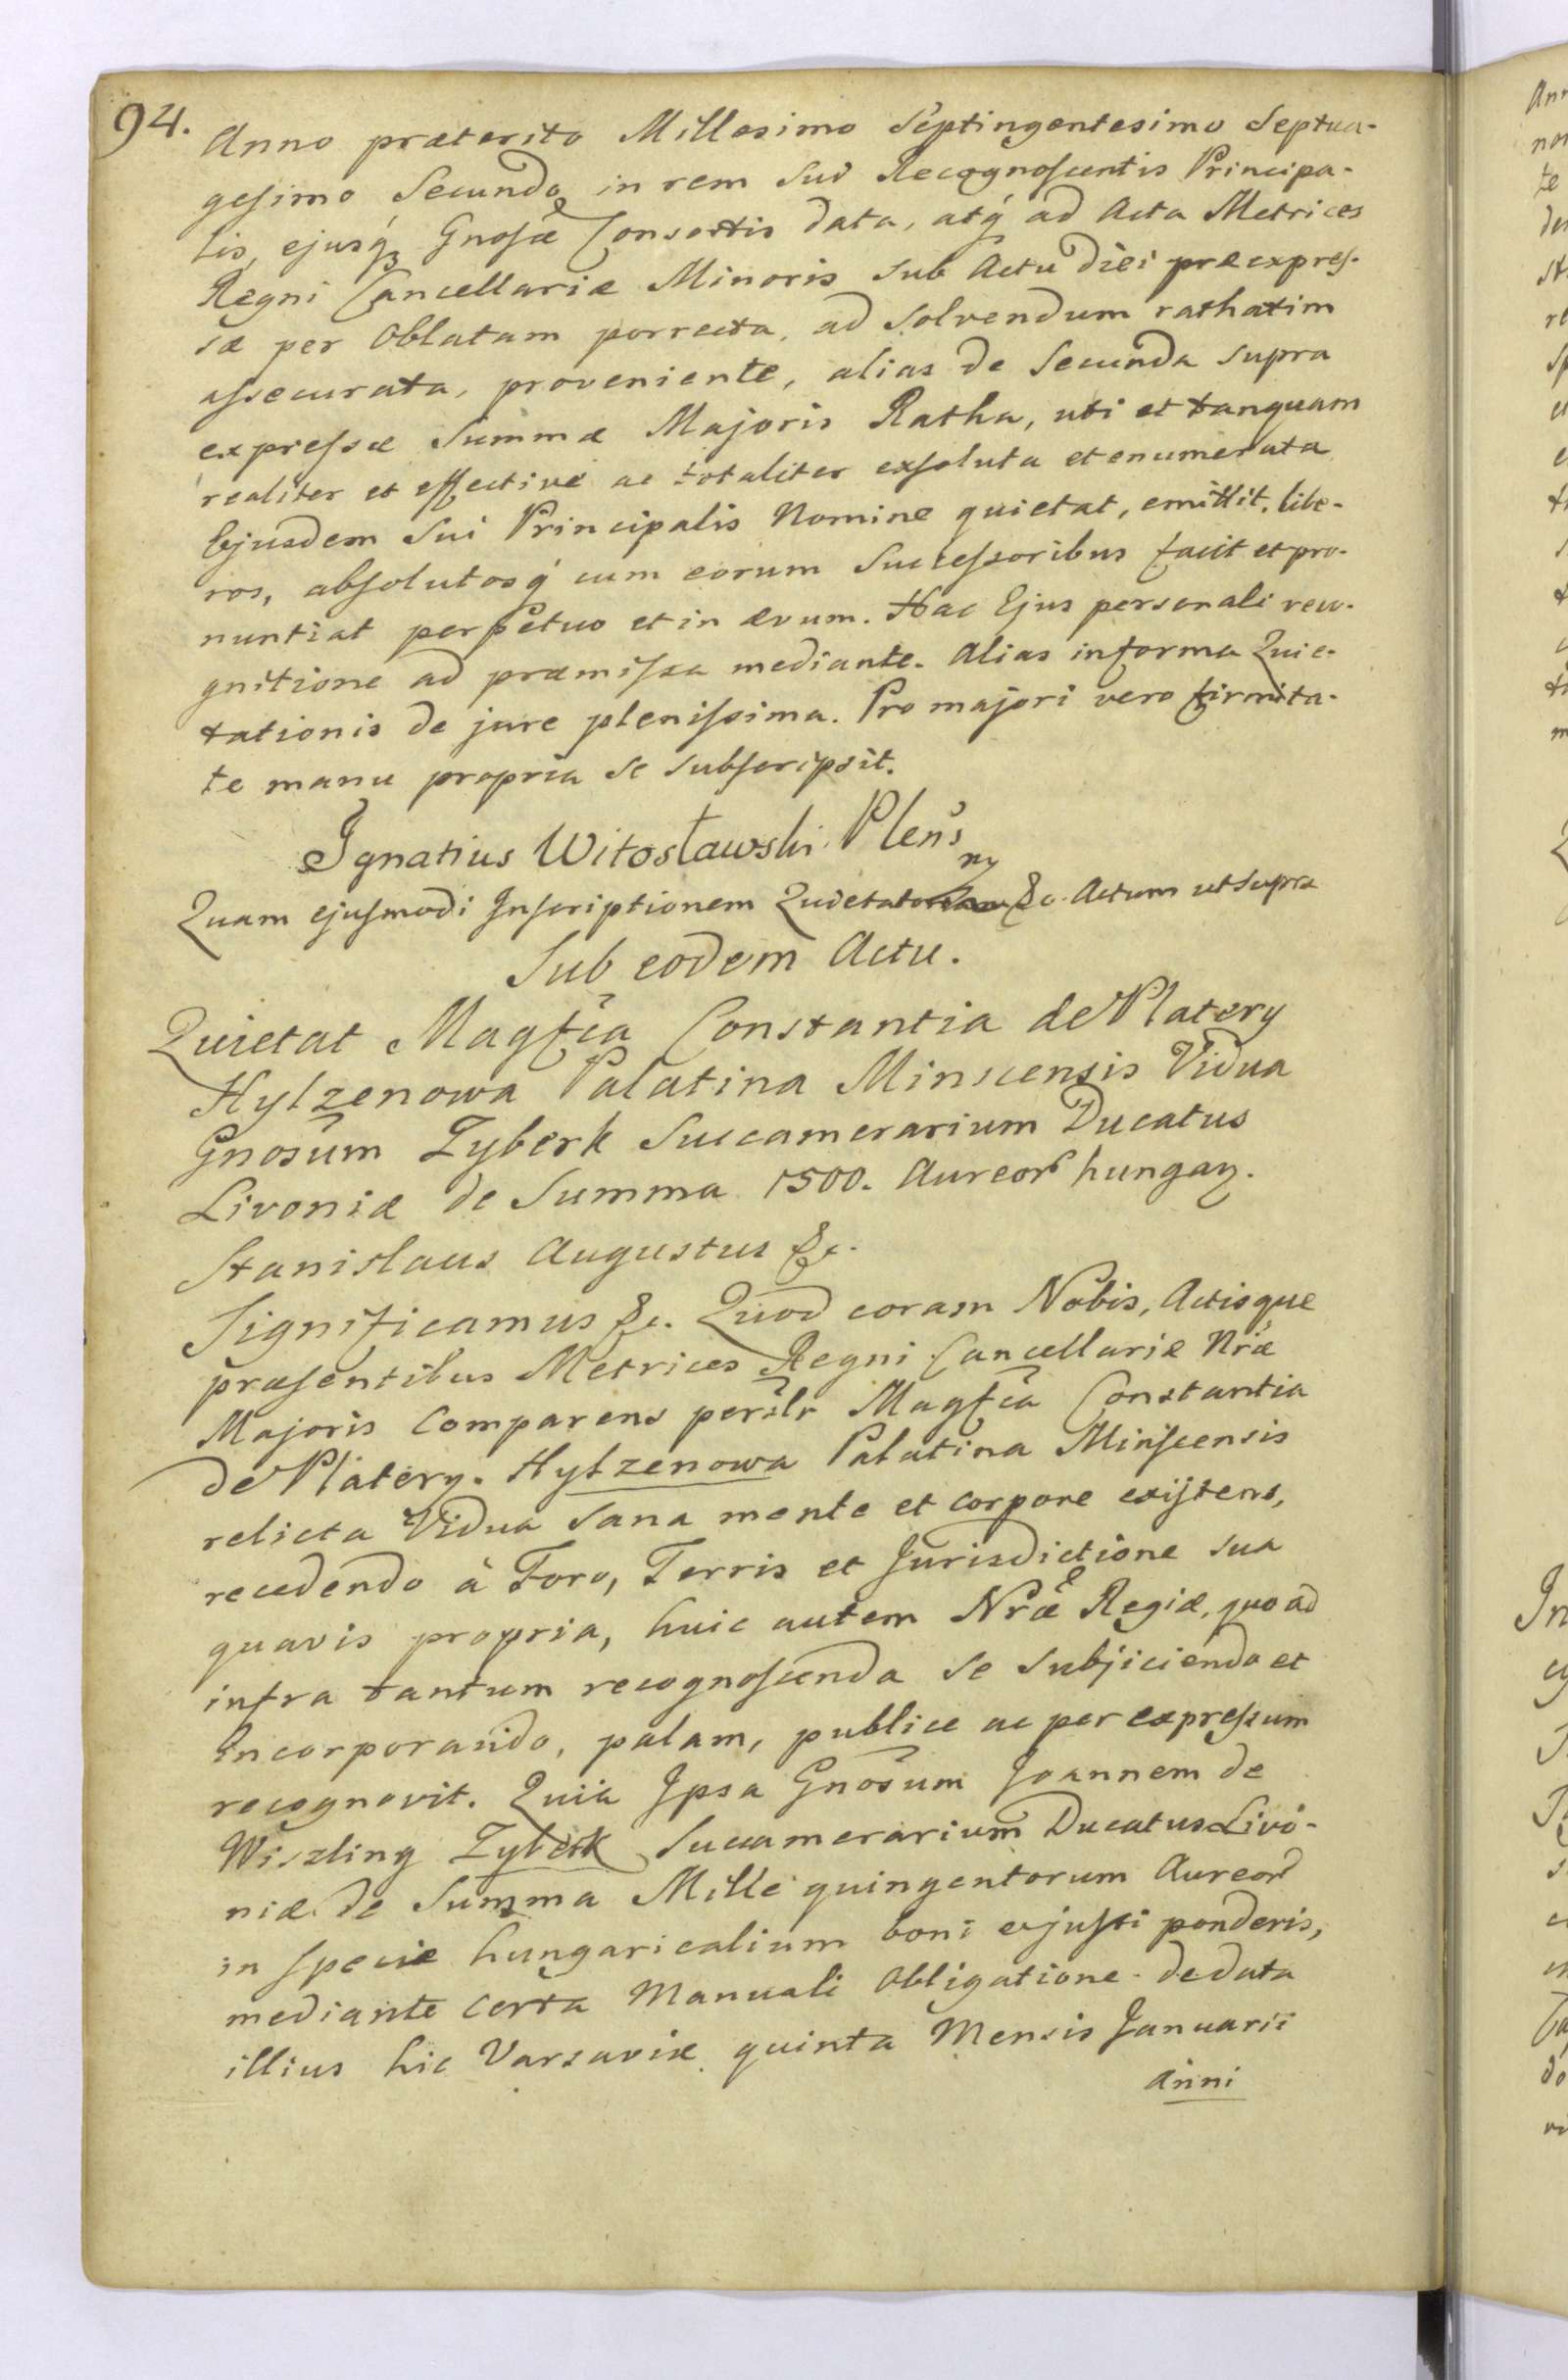 94.
Anno præterito Millesimo Septingentesimo Septua-
gesimo Secundo in rem Sui Recognoscentis Principa-
lis, ejusq₃ Gnosæ Consortis data, atq́ ad Acta Metrices
Regni Cancellariæ Minoris sub Actu diei præexpres-
sæ per Oblatam porrecta, ad solvendum rathatim
assecurata, proveniente, alias de Secunda supra
expressæ Summæ Majoris Ratha, uti et tanquam
realiter et effective ac totaliter exsoluta et enumerata
Ejusdem Sui Principalis Nomine quietat, emittit, libe-
ros, absolutosq́ cum eorum Successoribus facit et pro-
nuntiat perpetuo et in ævum. Hac Ejus personali reco-
gnitione ad præmissa mediante. Alias in forma Quie-
tationis de jure plenissima. Pro majori vero firmita-
te manu propria se subscripsit.
Ignatius Witosławski Plens
Quam ejusmodi Inscriptionem Quietatory &c. Actum ut supra
Sub eodem Actu.
Quietat Magfca Constantia de Platery
Hylzenowa Palatina Minscensis Vidua
Gnosum Zyberk Succamerarium Ducatus
Livoniæ de Summa 1500. Aureor hungaz.
Stanislaus Augustus &c.
Significamus &c. Quod coram Nobis, Actisque
præsentibus Metrices Regni Cancellariæ Nræ
Majoris Comparens persslr Magfca Constantia
de Platery. Hylzenowa Palatina Minscensis
relicta Vidua sana mente et corpore existens,
recedendo à Foro, Terris et Jurisdictione sua
quavis propria, huic autem Nræ Regiæ, quo ad
infra tantum recognoscenda se subjiciendo et
incorporando, palam, publice ac per expressum
recognovit. Quia Ipsa Gnosum Joannem de
Wiszling Zyberk Succamerarium Ducatus Livo-
niæ. de Summa Mille quingentorum Aureor
in specie hungaricalium boni et justi ponderis,
mediante certa Manuali Obligatione de data
illius hic Varsaviæ quinta Mensis Januarii
Anni